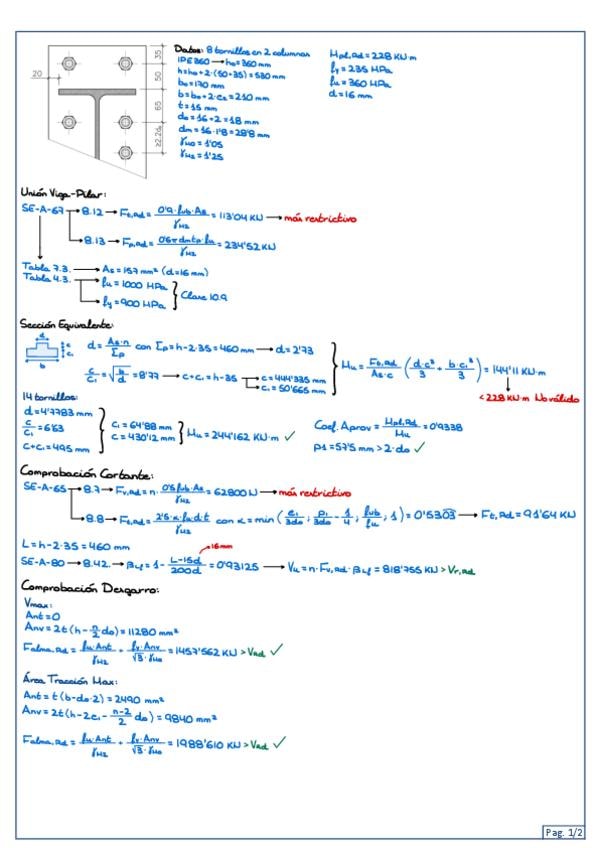 35
50
65
≥2.2d₀
20
Datos: 8 tornillos en 2 columnas
IPE360 → h₀=360 mm
h=h₀+2·(50+35)=530 mm
b₀=170 mm
b=b₀+2·e₂=210 mm
t=15 mm
d₀=16+2=18 mm
dm=16·1'8=28'8 mm
γM0=1'05
γM2=1'25
Mpl,Rd=228 KN·m
fy=235 MPa
fu=360 MPa
d=16 mm
Unión Viga-Pilar:
SE-A-67 → 8.12 → Ft,Rd= 0'9·fub·As / γM2 = 113'04 KN → más restrictivo
8.13 → Fp,Rd= 0'6π dm tp fu / γM2 = 234'52 KN
Tabla 7.3. → As=157 mm² (d=16 mm)
Tabla 4.3. → fu=1000 MPa
fy=900 MPa } Clase 10.9
Sección Equivalente:
d
c
c₁
b
d= As·n / Σp con Σp=h-2·35=460 mm → d=2'73
c/c₁=√(b/d)=8'77 → c+c₁=h-35 → c=444'335 mm
c₁=50'665 mm
Mu= Ft,Rd / As·c (d·c³/3 + b·c₁³/3)=144'11 KN·m
<228 KN·m No válido
14 tornillos:
d=4'7783 mm
c/c₁=6'63
c+c₁=495 mm
c₁=64'88 mm
c=430'12 mm } Mu=244'162 KN·m ✓
Coef. Aprov= Mpl,Rd / Mu =0'9338
p1=57'5 mm>2·do ✓
Comprobación Cortante:
SE-A-65 → 8.7 → Fv,Rd=n· 0'5·fub·As / γM2 =62800 N → más restrictivo
8.8 → Ft,Rd= 2'5·α·fu·d·t / γM2 con α=min(e₁/3do ; p₁/3do - 1/4 ; fub/fu ; 1)=0'5303 → Ft,Rd=91'64 KN
L=h-2·35=460 mm
16 mm
SE-A-80 → 8.42. → βLf=1- L-15d / 200d =0'93125 → Vu=n·Fv,Rd·βLf=818'755 KN>Vr,Rd
Comprobación Desgarro:
Vmax:
Ant=0
Anv=2t(h-n/2 do)=11280 mm²
Falma,Rd= fu·Ant / γM2 + fy·Anv / √3·γM0 =1457'562 KN>VRd ✓
Área Tracción Max:
Ant=t(b-do·2)=2490 mm²
Anv=2t(h-2e₁- n-2/2 do)=9840 mm²
Falma,Rd= fu·Ant / γM2 + fy·Anv / √3·γM0 =1988'610 KN>VRd ✓
Pag. 1/2